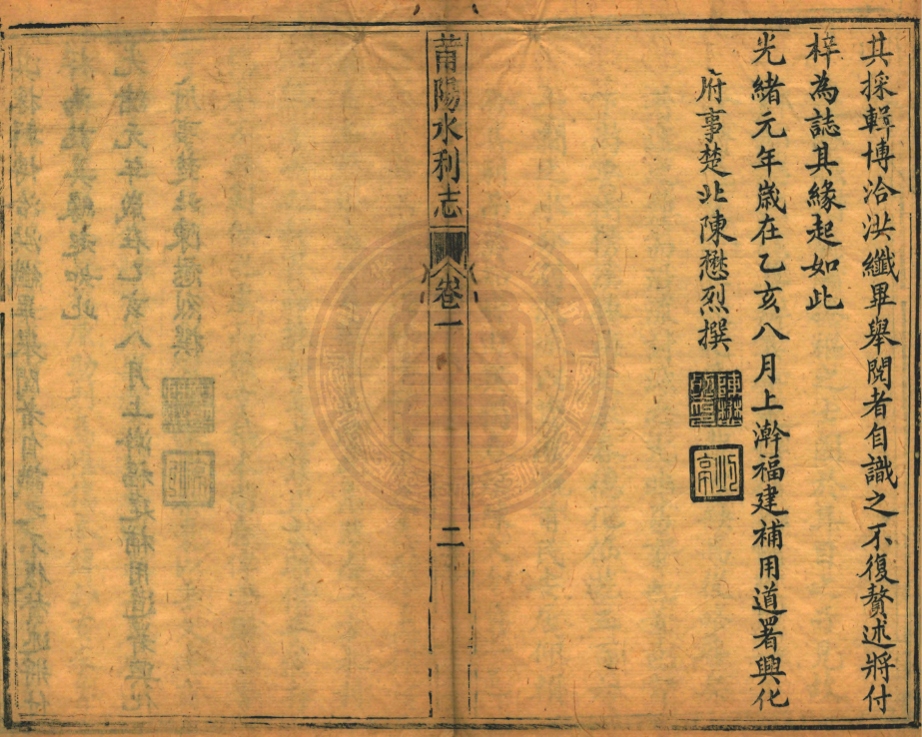 其採輯博洽洪纖畢舉閱者自識之不復贅述將付
梓為誌其緣起如此
光緒元年歲在乙亥八月上澣福建補用道署興化
府事楚北陳懋烈撰
莆陽水利志
卷一
二